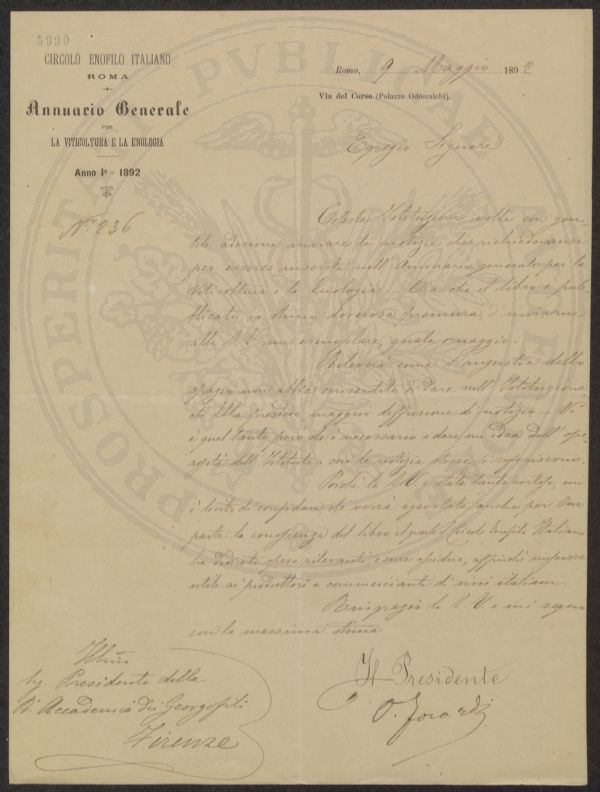 5990
CIRCOLO ENOFILO ITALIANO
ROMA
Annuario Generale
PER
LA VITICOLTURA E LA ENOLOGIA
Anno 1º - 1892
Nº 236
Roma, 9 Maggio 1892
Via del Corso (Palazzo Odescalchi).
Egregio Signore
Codesta Istituzione volle con gen
tile adesione inviare le notizie che richiedevansi
per essere inserite nell'Annuario generale per la
Viticoltura e la Enologia. Ora che il libro è pub
blicato, io stimo doverosa premura d'inviarne
alla S.V. un esemplare, quale omaggio.
Rileverà come l'angustia dello
spazio non abbia consentito di dare sull'Istituzione,
che Ella presiede maggior diffusione di notizie. V'
è quel tanto però che è necessario a dare un'idea dell'ope
rosità dell'Istituto a cui le notizie stesse si riferiscono.
Poichè la S.V. è stata tanto cortese, mi
è lecito di confidare che vorrà agevolare anche per Sua
parte la conoscenza del libro, al quale il Circolo Enofilo Italiano
ha dedicato spese rilevanti, e cure assidue, affinchè riuscisse
utile ai produttori e commercianti di vini italiani.
Ringrazio la S.V. e mi segno
con la massima stima
Il Presidente
Illmo
Sig. Presidente della
R. Accademia dei Georgofili
Firenze
PROSPERITATI PVBLICAE AVGENDAE